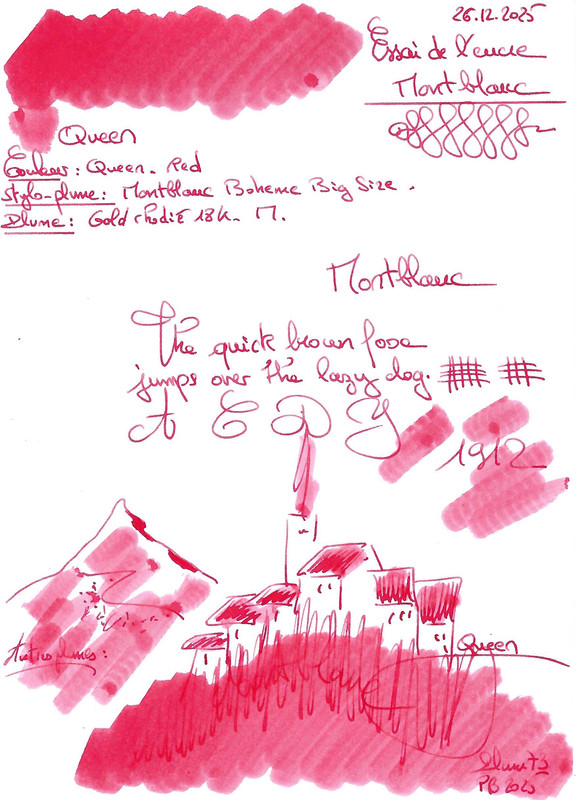 26.12.2025
Essai de l'encre
Montblanc
Queen
Couleur: Queen - Red
Stylo-plume: Montblanc Boheme Big Size.
Plume: Gold rhodié 18K - M.
Montblanc
The quick brown foxe
jumps over the lazy dog.
A E D Y
1912
Queen
Montblanc
PB 2025